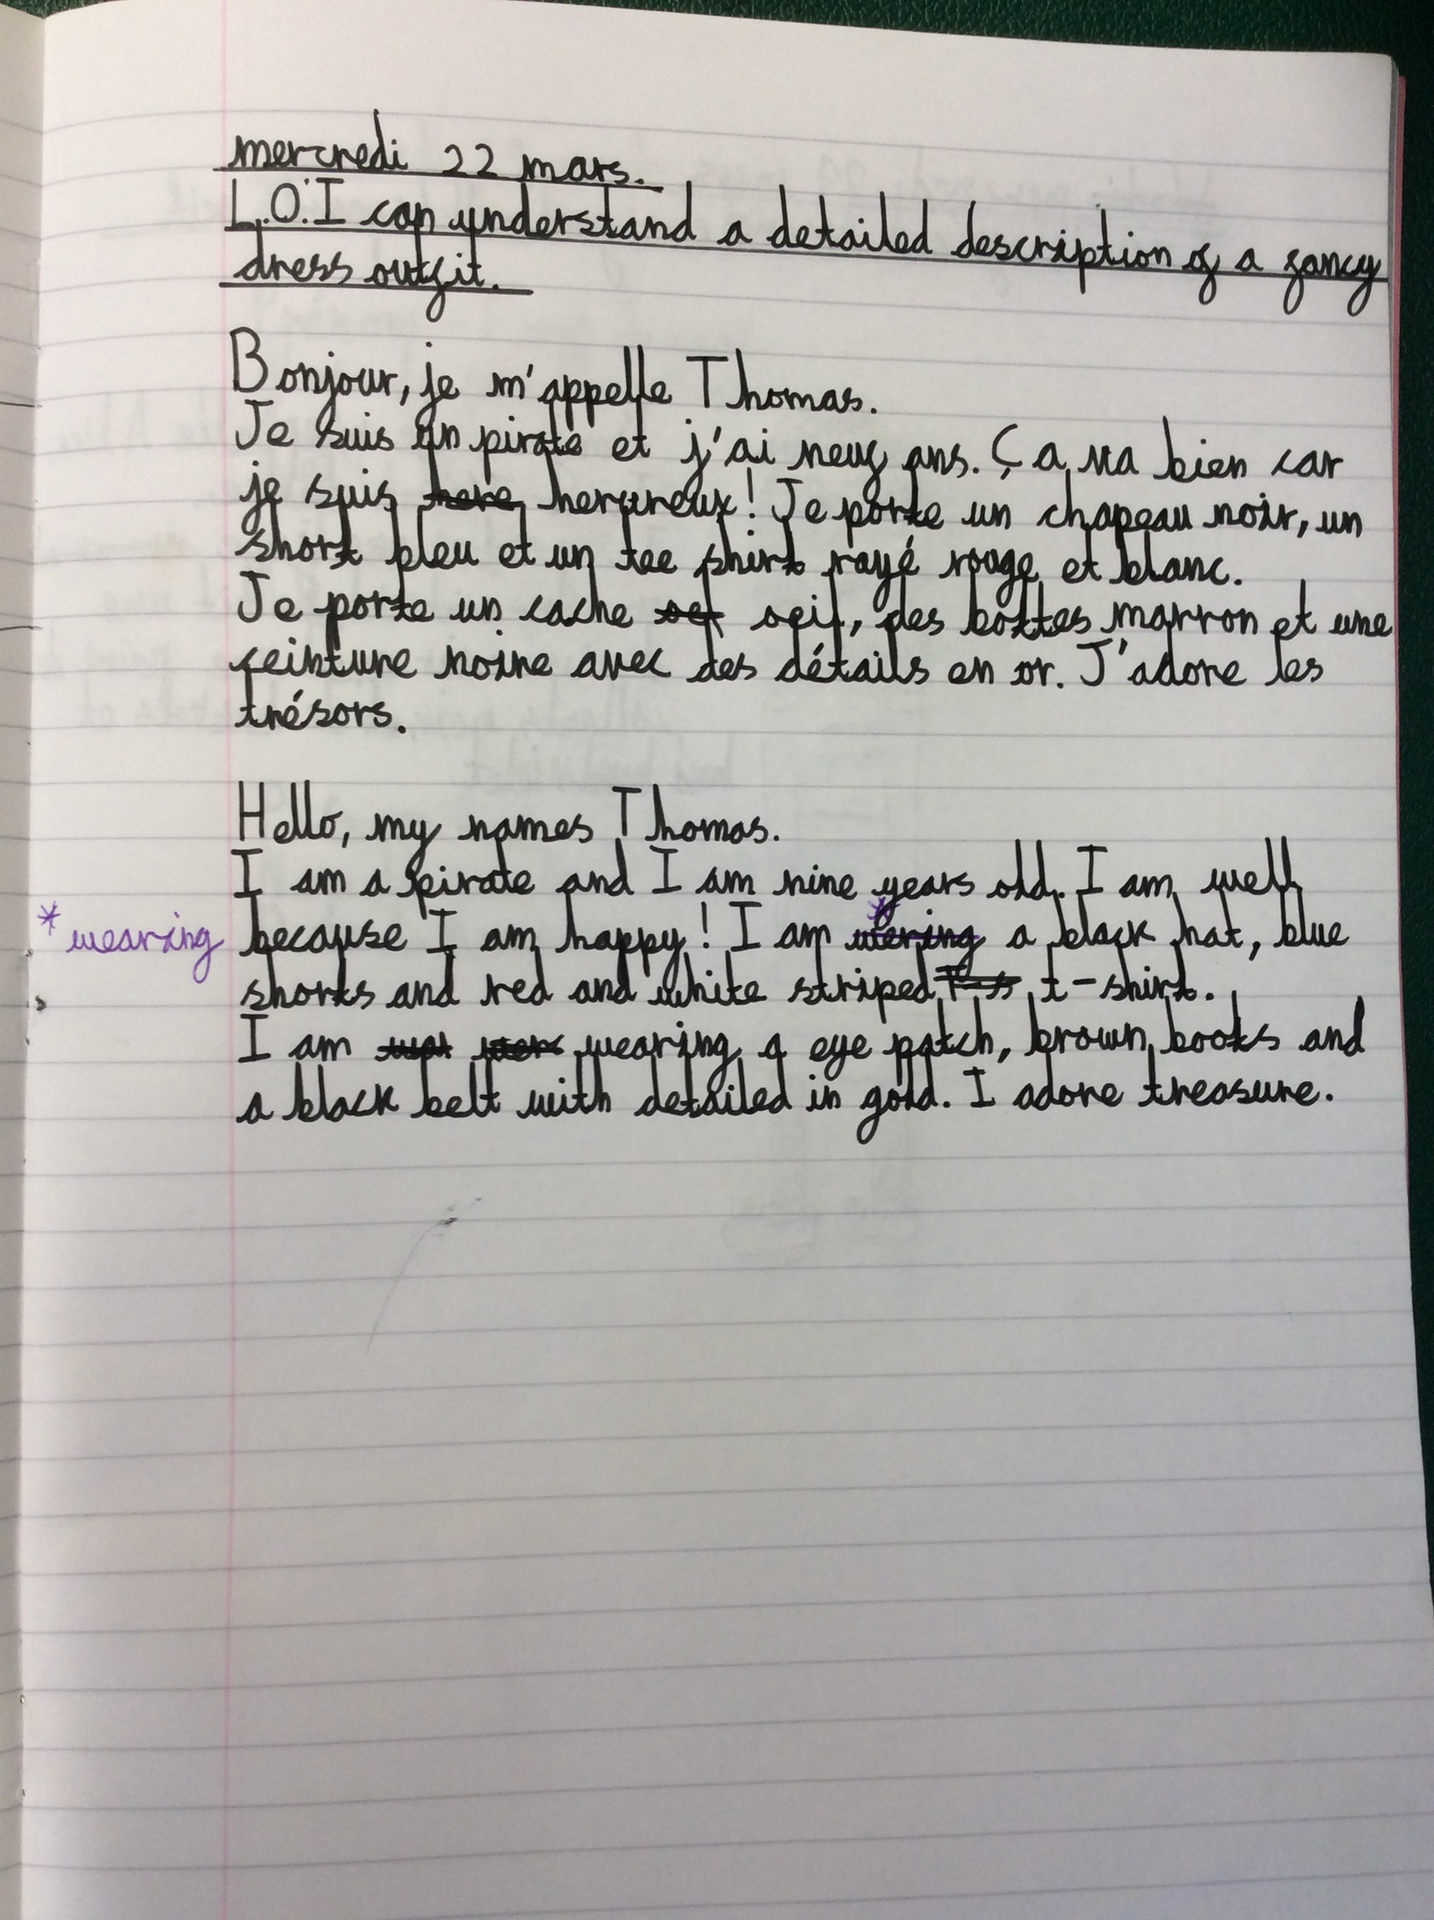 mercredi 22 mars.
L.O.I can understand a detailed description of a fancy
dress outfit.
Bonjour, je m'appelle Thomas.
Je suis un pirate et j'ai neuf ans. Ça va bien car
je suis here herureux! Je porte un chapeau noir, un
short bleu et un tee shirt rayé rouge et blanc.
Je porte un cache oeil, des bottes marron et une
ceinture noire avec des détails en or. J'adore les
trésors.
Hello, my names Thomas.
I am a pirate and I am nine years old. I am well
* wearing because I am happy! I am wering * a black hat, blue
shorts and red and white striped t-shirt.
I am wearing a eye patch, brown boots and
a black belt with detailed in gold. I adore treasure.